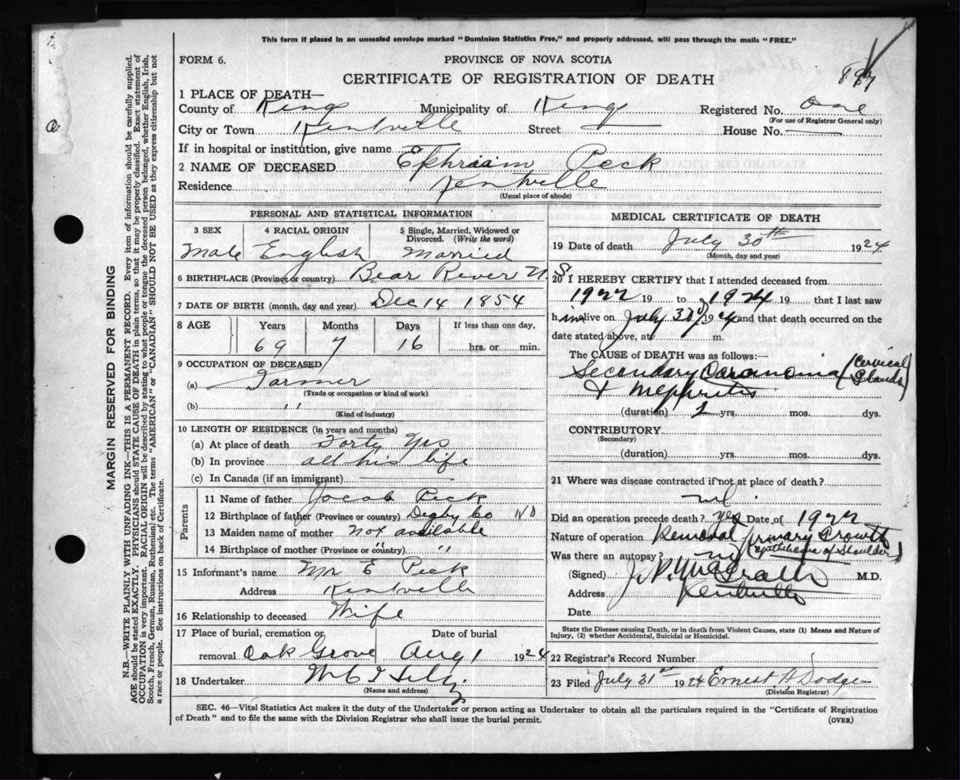 This form if placed in an unsealed envelope marked "Dominion Statistics Free," and properly addressed, will pass through the mails "FREE."
FORM 6.
PROVINCE OF NOVA SCOTIA
CERTIFICATE OF REGISTRATION OF DEATH
897
1 PLACE OF DEATH—
County of Kings Municipality of Kings Registered No. one
(For use of Registrar General only)
City or Town Kentville Street — House No. —
If in hospital or institution, give name
2 NAME OF DECEASED Ephraim Peck
Residence Kentville
(Usual place of abode)
PERSONAL AND STATISTICAL INFORMATION
3 SEX 4 RACIAL ORIGIN 5 Single, Married, Widowed or Divorced. (Write the word)
Male English Married
6 BIRTHPLACE (Province or country) Bear River N.S.
7 DATE OF BIRTH (month, day and year) Dec 14 1854
8 AGE Years Months Days If less than one day,
69 7 16 hrs. or min.
9 OCCUPATION OF DECEASED
(a) Farmer
(Trade or occupation or kind of work)
(b) "
(Kind of industry)
10 LENGTH OF RESIDENCE (in years and months)
(a) At place of death Forty Yrs
(b) In province all his life
(c) In Canada (if an immigrant) —
Parents
11 Name of father Jacob Peck
12 Birthplace of father (Province or country) Digby Co
13 Maiden name of mother Not available
14 Birthplace of mother (Province or country) " "
15 Informant's name Mrs E Peck
Address Kentville
16 Relationship to deceased Wife
17 Place of burial, cremation or removal Oak Grove Date of burial Aug 1 1924
18 Undertaker
(Name and address)
MEDICAL CERTIFICATE OF DEATH
19 Date of death July 30th 1924
(Month, day and year)
20 I HEREBY CERTIFY that I attended deceased from
1922 19 to 1924 19 that I last saw
him alive on July 30 1924 and that death occurred on the
date stated above, at m.
The CAUSE OF DEATH was as follows:—
Secondary Carcinoma (Cervical Glands)
& Nephritis
(duration) 2 yrs. mos. dys.
CONTRIBUTORY
(Secondary)
(duration) yrs. mos. dys.
21 Where was disease contracted if not at place of death?
Did an operation precede death? yes Date of 1922
Nature of operation Removal Primary Growth
(Epithelioma of Shoulder)
Was there an autopsy? no
(Signed) M.D.
Address Kentville
Date
State the Disease causing Death, or in death from Violent Causes, state (1) Means and Nature of Injury, (2) whether Accidental, Suicidal or Homicidal.
22 Registrar's Record Number 1
23 Filed July 31st 1924 Ernest H. Dodge
(Division Registrar)
SEC. 46—Vital Statistics Act makes it the duty of the Undertaker or person acting as Undertaker to obtain all the particulars required in the "Certificate of Registration
of Death" and to file the same with the Division Registrar who shall issue the burial permit.
(OVER)
MARGIN RESERVED FOR BINDING
N.B.—WRITE PLAINLY WITH UNFADING INK—THIS IS A PERMANENT RECORD. Every item of information should be carefully supplied.
AGE should be stated EXACTLY. PHYSICIANS should STATE CAUSE OF DEATH in plain terms, so that it may be properly classified. Exact statement of
OCCUPATION is very important. RACIAL ORIGIN will be described by stating to what people or tongue the deceased person belonged, whether English, Irish,
Scotch, French, German, Russian, Ruthenian, etc. The terms "AMERICAN" or "CANADIAN" SHOULD NOT BE USED as they express citizenship but not
a race or people. See instructions on back of Certificate.